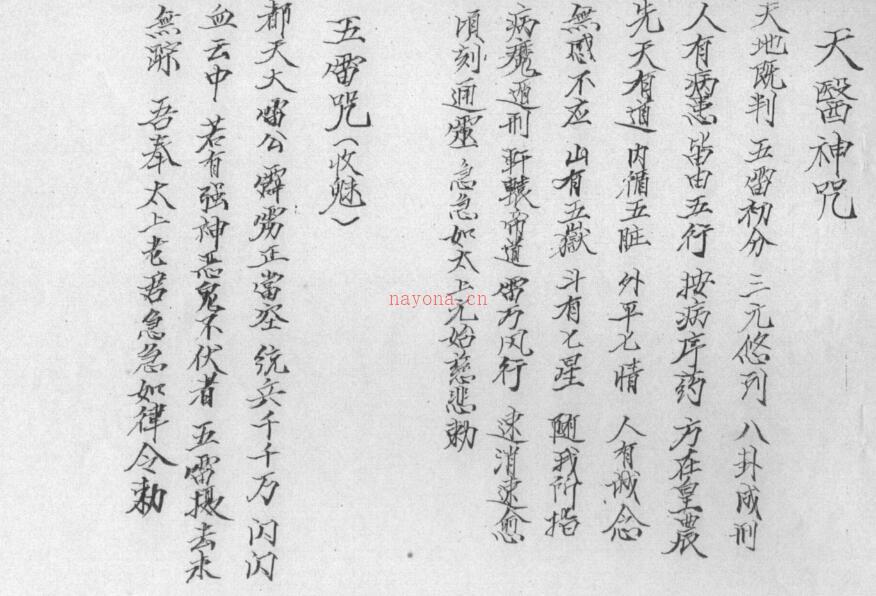 天醫神咒
天地既判 五雷初分 三元悠列 八卦成刑
人有病患 皆由五行 按病序药 方在皇農
先天有道 内循五脏 外平七情 人有诚念
無感不应 山有五嶽 斗有七星 随我所指
病魔遁刑 軒轅帝道 雷万风行 速消速愈
頃刻通靈 急急如太上元始慈悲勅
五雷咒(收魅)
都天大雷公 霹雳正當空 统兵千千万 闪闪
血云中 若有强神恶鬼不伏者 五雷摄去永
無踪 吾奉太上老君急急如律令勅
nayona.cn